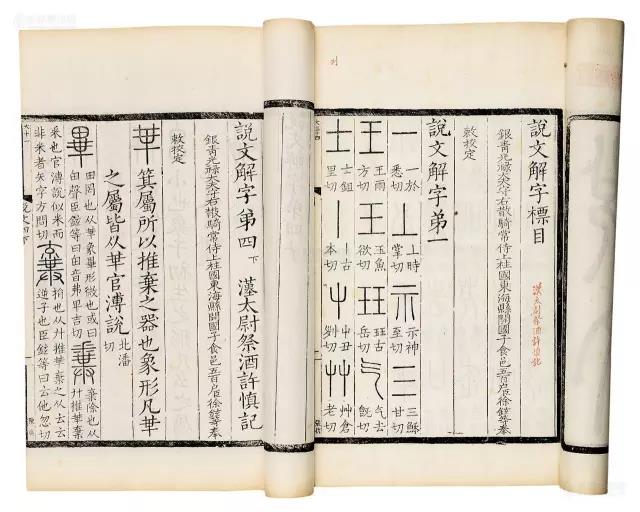 說文解字標目
漢太尉祭酒許慎記
銀青光祿大夫守右散騎常侍上柱國東海縣開國子食邑五百戶徐鉉等奉
敕校定
說文解字弟一
一 一於悉切 丄 上時掌切 示 示神至切 三 三穌甘切
王 王雨方切 玉 玉魚欲切 玨 玨古岳切 气 气去既切
士 士鉏里切 丨 丨古本切 屮 屮丑列切 艸 艸倉老切
說文解字弟四下 漢太尉祭酒許慎記
銀青光祿大夫守右散騎常侍上柱國東海縣開國子食邑五百戶徐鉉等奉
敕校定
𠦒 箕屬所以推棄之器也象形凡𠦒
之屬皆从𠦒官溥說 北潘切
畢 田罔也从𠦒象畢形微也或曰甶聲臣鉉等曰甶音弗卑吉切 糞 棄除也从廾推𠦒棄
釆也官溥說似米而非米者矢字方問切 棄 捐也从廾推𠦒棄之从𠫓𠫓逆子也臣鉉等曰𠫓他忽切